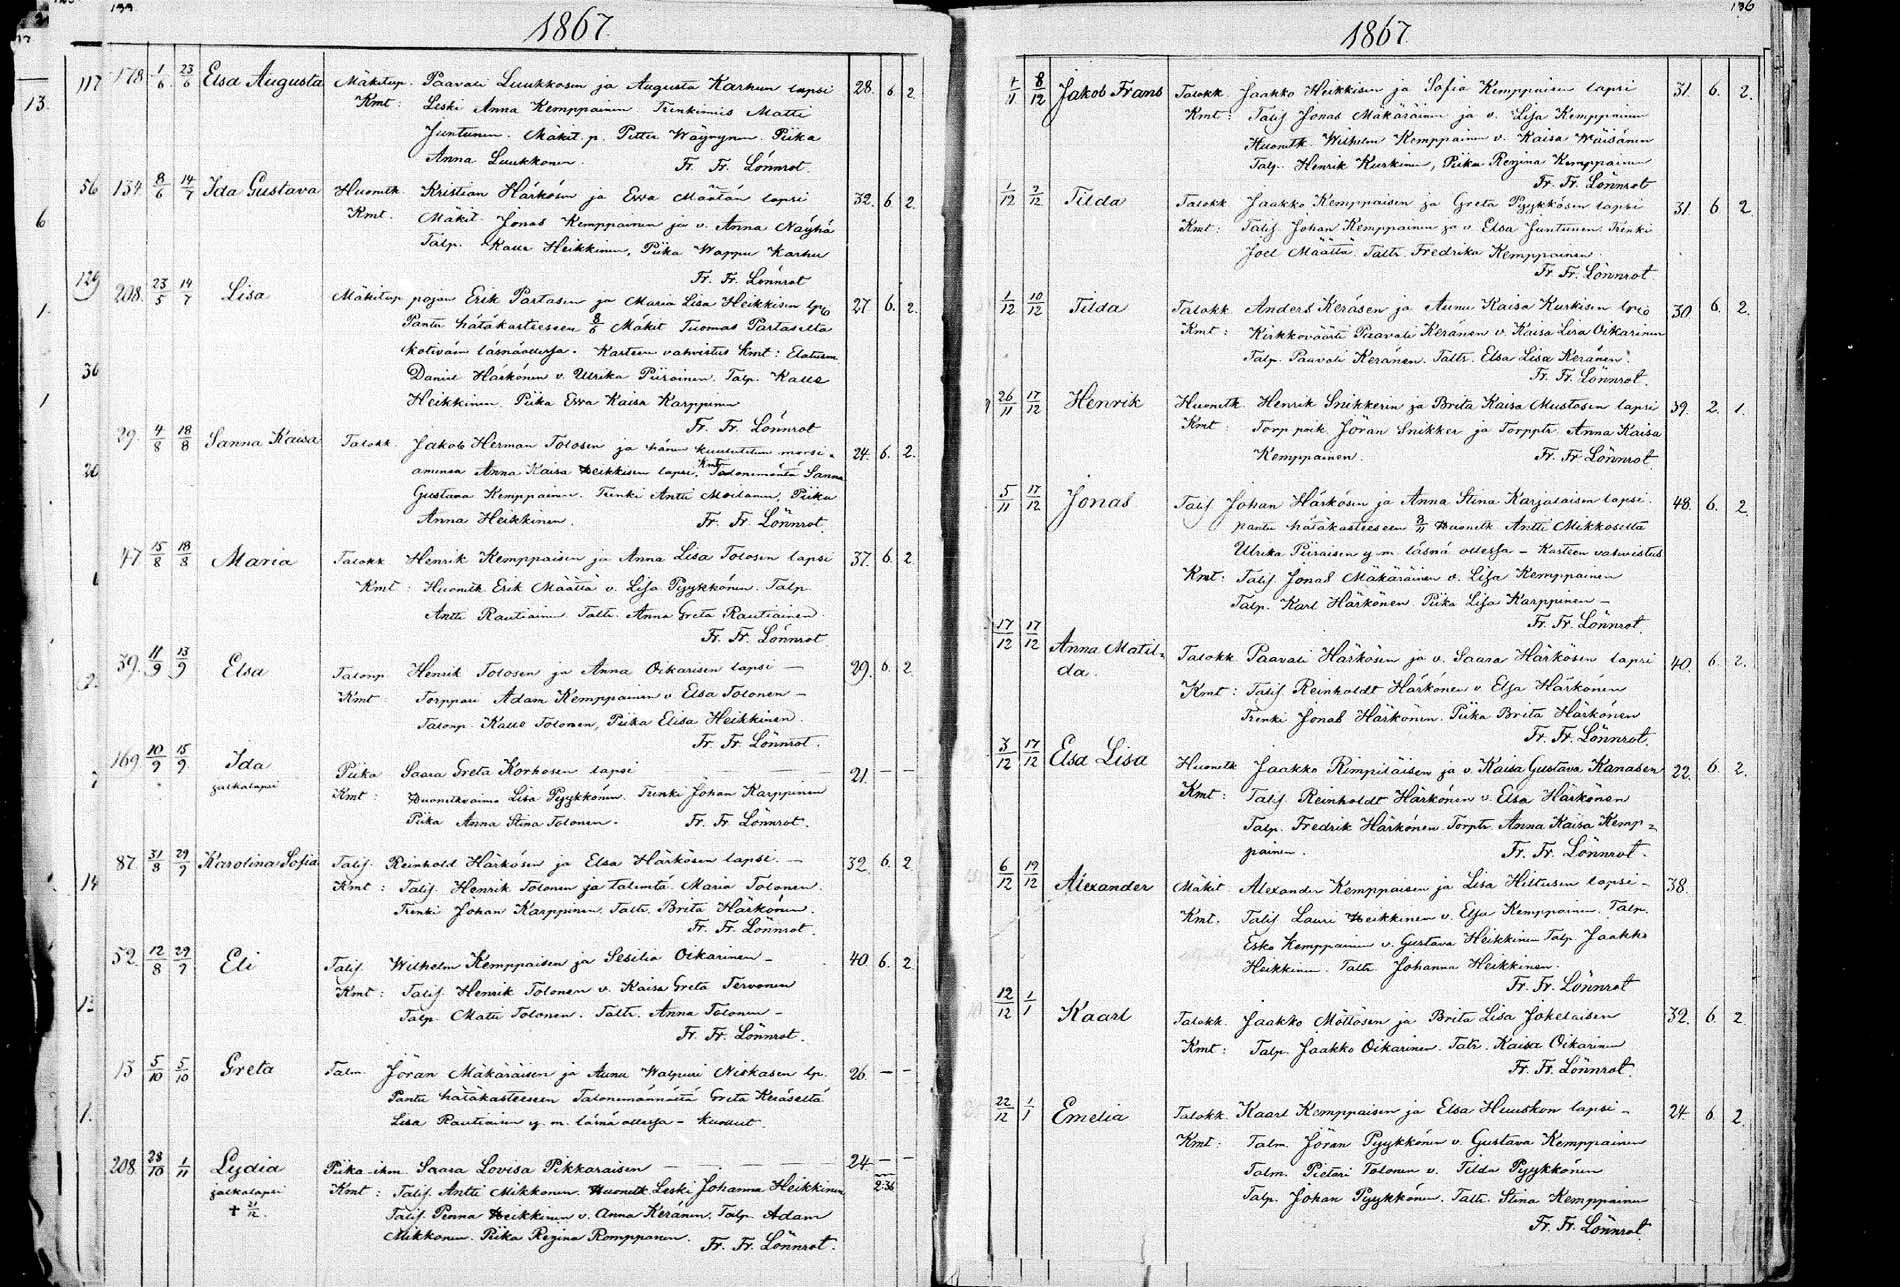 133
1867
117 178 1/6 23/6 Elsa Augusta Mäkitup. Paavali Luukkosen ja Augusta Karhun lapsi 28. 6 2.
13. Kmt: Leski Anna Kemppainen Trenkimies Matti
Juntunen. Mäkit. p. Petter Wäyrynen. Piika
Anna Luukkonen. Fr. Fr. Lönnrot.
56 134 8/6 14/7 Ida Gustava Huonetk. Kristian Härkösen ja Ewa Määtän lapsi 32. 6 2.
6 Kmt. Mäkit. Jonas Kemppainen ja v. Anna Näyhä
Talp. Kalle Heikkinen, Piika Wappu Karhu
Fr. Fr. Lönnrot
129 208. 23/5 14/7 Lisa Mäkitup. pojan Erik Partasen ja Maria Lisa Heikkisen lpsi 27 6. 2.
1. Pantu hätäkasteeseen 8/6 Mäkit Tuomas Partaselta
kotiväen läsnäollessa. Kasteen vahvistus Kmt: Elatusm
36 Daniel Härkönen v. Ulrika Piirainen. Talp. Kalle
1 Heikkinen. Piika Ewa Kaisa Karppinen
Fr. Fr. Lönnrot
29. 4/8 18/8 Sanna Kaisa Talokk. Jakob Herman Tolosen ja hänen kuulutetun morsi- 24. 6. 2.
20 amensa Anna Kaisa Heikkisen lapsi. Kmt. Talonemäntä Sanna
Gustava Kemppainen. Trenki Antti Moilanen, Piika
Anna Heikkinen. Fr. Fr. Lönnrot
47 15/8 18/8 Maria Talokk Henrik Kemppaisen ja Anna Lisa Tolosen lapsi 37. 6 2
Kmt: Huonetk Erik Määttä v. Lisa Pyykkönen. Talp.
Antti Rautiainen Taltr. Anna Greta Rautiainen.
Fr. Fr. Lönnrot
39. 11/9 13/9 Elsa Talonp. Henrik Tolosen ja Anna Oikarisen lapsi — 29. 6 2
2. Kmt Torppari Adam Kemppainen v. Elsa Tolonen —
Talonp. Kalle Tolonen, Piika Elisa Heikkinen.
Fr. Fr. Lönnrot.
169. 10/9 15/9. Ida Piika Saara Greta Korhosen lapsi — — — 21. — —
7 jalkalapsi Kmt: Huonetkvaimo Lisa Pyykkönen. Trenki Johan Karppinen
Piika Anna Stina Tolonen. Fr. Fr. Lönnrot.
87. 31/8 29/9 Karolina Sofia Talij. Reinhold Härkösen ja Elsa Härkösen lapsi. — 32. 6. 2
14 Kmt: Talij. Henrik Tolonen ja talemtä. Maria Tolonen.
Trenki Johan Karppinen. Taltr. Brita Härkönen.
Fr. Fr. Lönnrot.
52. 12/8 29/9 Eli Talij. Wilhelm Kemppaisen ja Sesilia Oikarinen — 40 6. 2
Kmt: Talij. Henrik Tolonen v. Kaisa Greta Tervonen
Talp. Matti Tolonen. Taltr. Anna Tolonen —
Fr. Fr. Lönnrot.
13 5/10 5/10 Greta Talm. Jöran Mäkäräisen ja Aunu Walpuri Niskasen lp. 26. — —
Pantu hätäkasteeseen Talonemännältä Greta Keräseltä
1. Lisa Rautiaisen y. m. läsnä ollessa — kuollut.
208. 28/10 1/11 Lydia Piika ihm. Saara Lovisa Pikkaraisen — — — 24 — —
jalkalapsi Kmt: Talij. Antti Mikkonen. Huonetk Leski Johanna Heikkinen 236
Talij. Penna Heikkinen v. Anna Keränen. Talp. Adam
Mikkonen. Piika Regina Romppanen. Fr. Fr. Lönnrot.
136
1867
1/11 8/12 Jakob Frans Talokk. Jaakko Heikkisen ja Sofia Kemppaisen lapsi 31. 6. 2.
Kmt: Talij Jonas Mäkäräinen ja v. Lisa Kemppainen
Huonetk. Wilhelm Kemppainen v. Kaisa Wäisänen
Talp. Henrik Kurkinen, Piika Regina Kemppainen
Fr. Fr. Lönnrot
1/12 7/12 Tilda Talokk Jaakko Kemppaisen ja Greta Pyykkösen lapsi 31 6 2
Kmt: Talij Johan Kemppainen ja v. Elsa Juntunen. Trenki
Joel Määttä. Taltr. Fredrika Kemppainen
Fr. Fr. Lönnrot.
1/12 10/12 Tilda Talokk. Anders Keräsen ja Aunu Kaisa Kurkisen lpsi 30 6. 2.
Kmt: Kirkkoväärti Paavali Keränen v. Kaisa Lisa Oikarinen
Talp. Paavali Keränen. Taltr. Elsa Lisa Keränen.
Fr. Fr. Lönnrot.
26/11 17/12 Henrik Huonetk. Henrik Snikkerin ja Brita Kaisa Mustosen lapsi 39. 2. 1.
Kmt: Torp poik Jöran Snikker ja Torpptr. Anna Kaisa
Kemppainen. Fr. Fr Lönnrot
5/11 17/12 Jonas Talij Johan Härkösen ja Anna Stina Karjalaisen lapsi. 48. 6. 2.
pantu hätäkasteeseen 8/11 Huonetk Antti Mikkoselta
Ulrika Piiraisen y. m. läsnä ollessa — Kasteen vahvistus
Kmt: Talij Jonas Mäkäräinen v. Lisa Kemppainen
Talp. Karl Härkönen Piika Lisa Karppinen —
Fr. Fr. Lönnrot.
17/12 17/12 Anna Matil- Talokk Paavali Härkösen ja v. Saara Härkösen lapsi 40. 6. 2.
da. Kmt: Talij Reinholdt Härkönen v. Elsa Härkönen
Trenki Jonas Härkönen. Piika Brita Härkönen
Fr. Fr. Lönnrot.
3/12 17/12 Elsa Lisa Huonetk Jaakko Rimpiläisen ja v. Kaisa Gustava Kanasen 22. 6. 2.
Kmt: Talij. Reinholdt Härkönen v. Elsa Härkönen
Talp. Fredrik Härkönen. Torptr. Anna Kaisa Kemp-
painen. Fr. Fr. Lönnrot.
6/12 19/12 Alexander Mäkit Alexander Kemppaisen ja Lisa Hiltusen lapsi — 38.
Kmt. Talij Lauri Heikkinen v. Elsa Kemppainen. Talp.
Esko Kemppainen v. Gustava Heikkinen Talp. Jaakko
Heikkinen. Taltr Johanna Heikkinen.
Fr. Fr. Lönnrot
12/12 1/1 Kaarl Talokk. Jaakko Möttösen ja Brita Lisa Jokelaisen 32. 6. 2
Kmt: Talp. Jaakko Oikarinen. Taltr. Kaisa Oikarinen
Fr. Fr. Lönnrot.
22/12 1/1 Emelia Talokk. Kaarl Kemppaisen ja Elsa Huuskon lapsi — 24. 6 2
Kmt: Talm. Jöran Pyykkönen v. Gustava Kemppainen
Talm. Pietari Tolonen v. Tilda Pyykkönen
Talp. Johan Pyykkönen. Taltr. Stina Kemppainen
Fr. Fr. Lönnrot